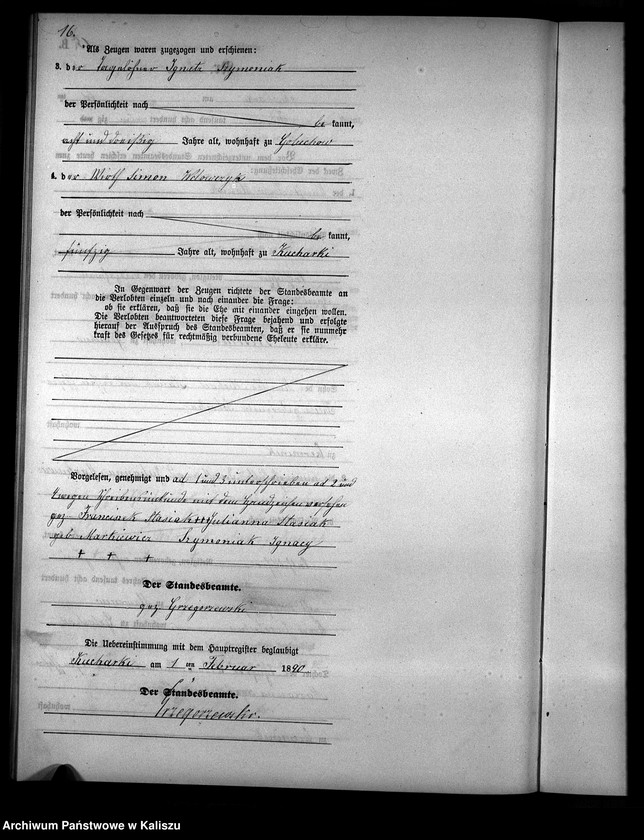 16.
Als Zeugen waren zugezogen und erschienen:
3. der Tagelöhner Ignatz Szymoniak
der Persönlichkeit nach
be kannt,
acht und dreißig Jahre alt, wohnhaft zu Goluchow
4. der Wirth Simon
der Persönlichkeit nach
be kannt,
fünfzig Jahre alt, wohnhaft zu Kucharki
In Gegenwart der Zeugen richtete der Standesbeamte an
die Verlobten einzeln und nach einander die Frage:
ob sie erklären, daß sie die Ehe mit einander eingehen wollen.
Die Verlobten beantworteten diese Frage bejahend und erfolgte
hierauf der Ausspruch des Standesbeamten, daß er sie nunmehr
kraft des Gesetzes für rechtmäßig verbundene Eheleute erkläre.
Vorgelesen, genehmigt und ad 1 und 3 unterschrieben ad 2 und
4 wegen Schreibensunkunde mit dem Handzeichen versehen
gez Franciszek Stasiak +++ Julianna Stasiak
geb Markiewicz Szymoniak Ignacy
+ + +
Der Standesbeamte.
gez Grzegorzewski
Die Uebereinstimmung mit dem Hauptregister beglaubigt
Kucharki am 1 ten Februar 1890
Der Standesbeamte.
Grzegorzewski.
Archiwum Państwowe w Kaliszu